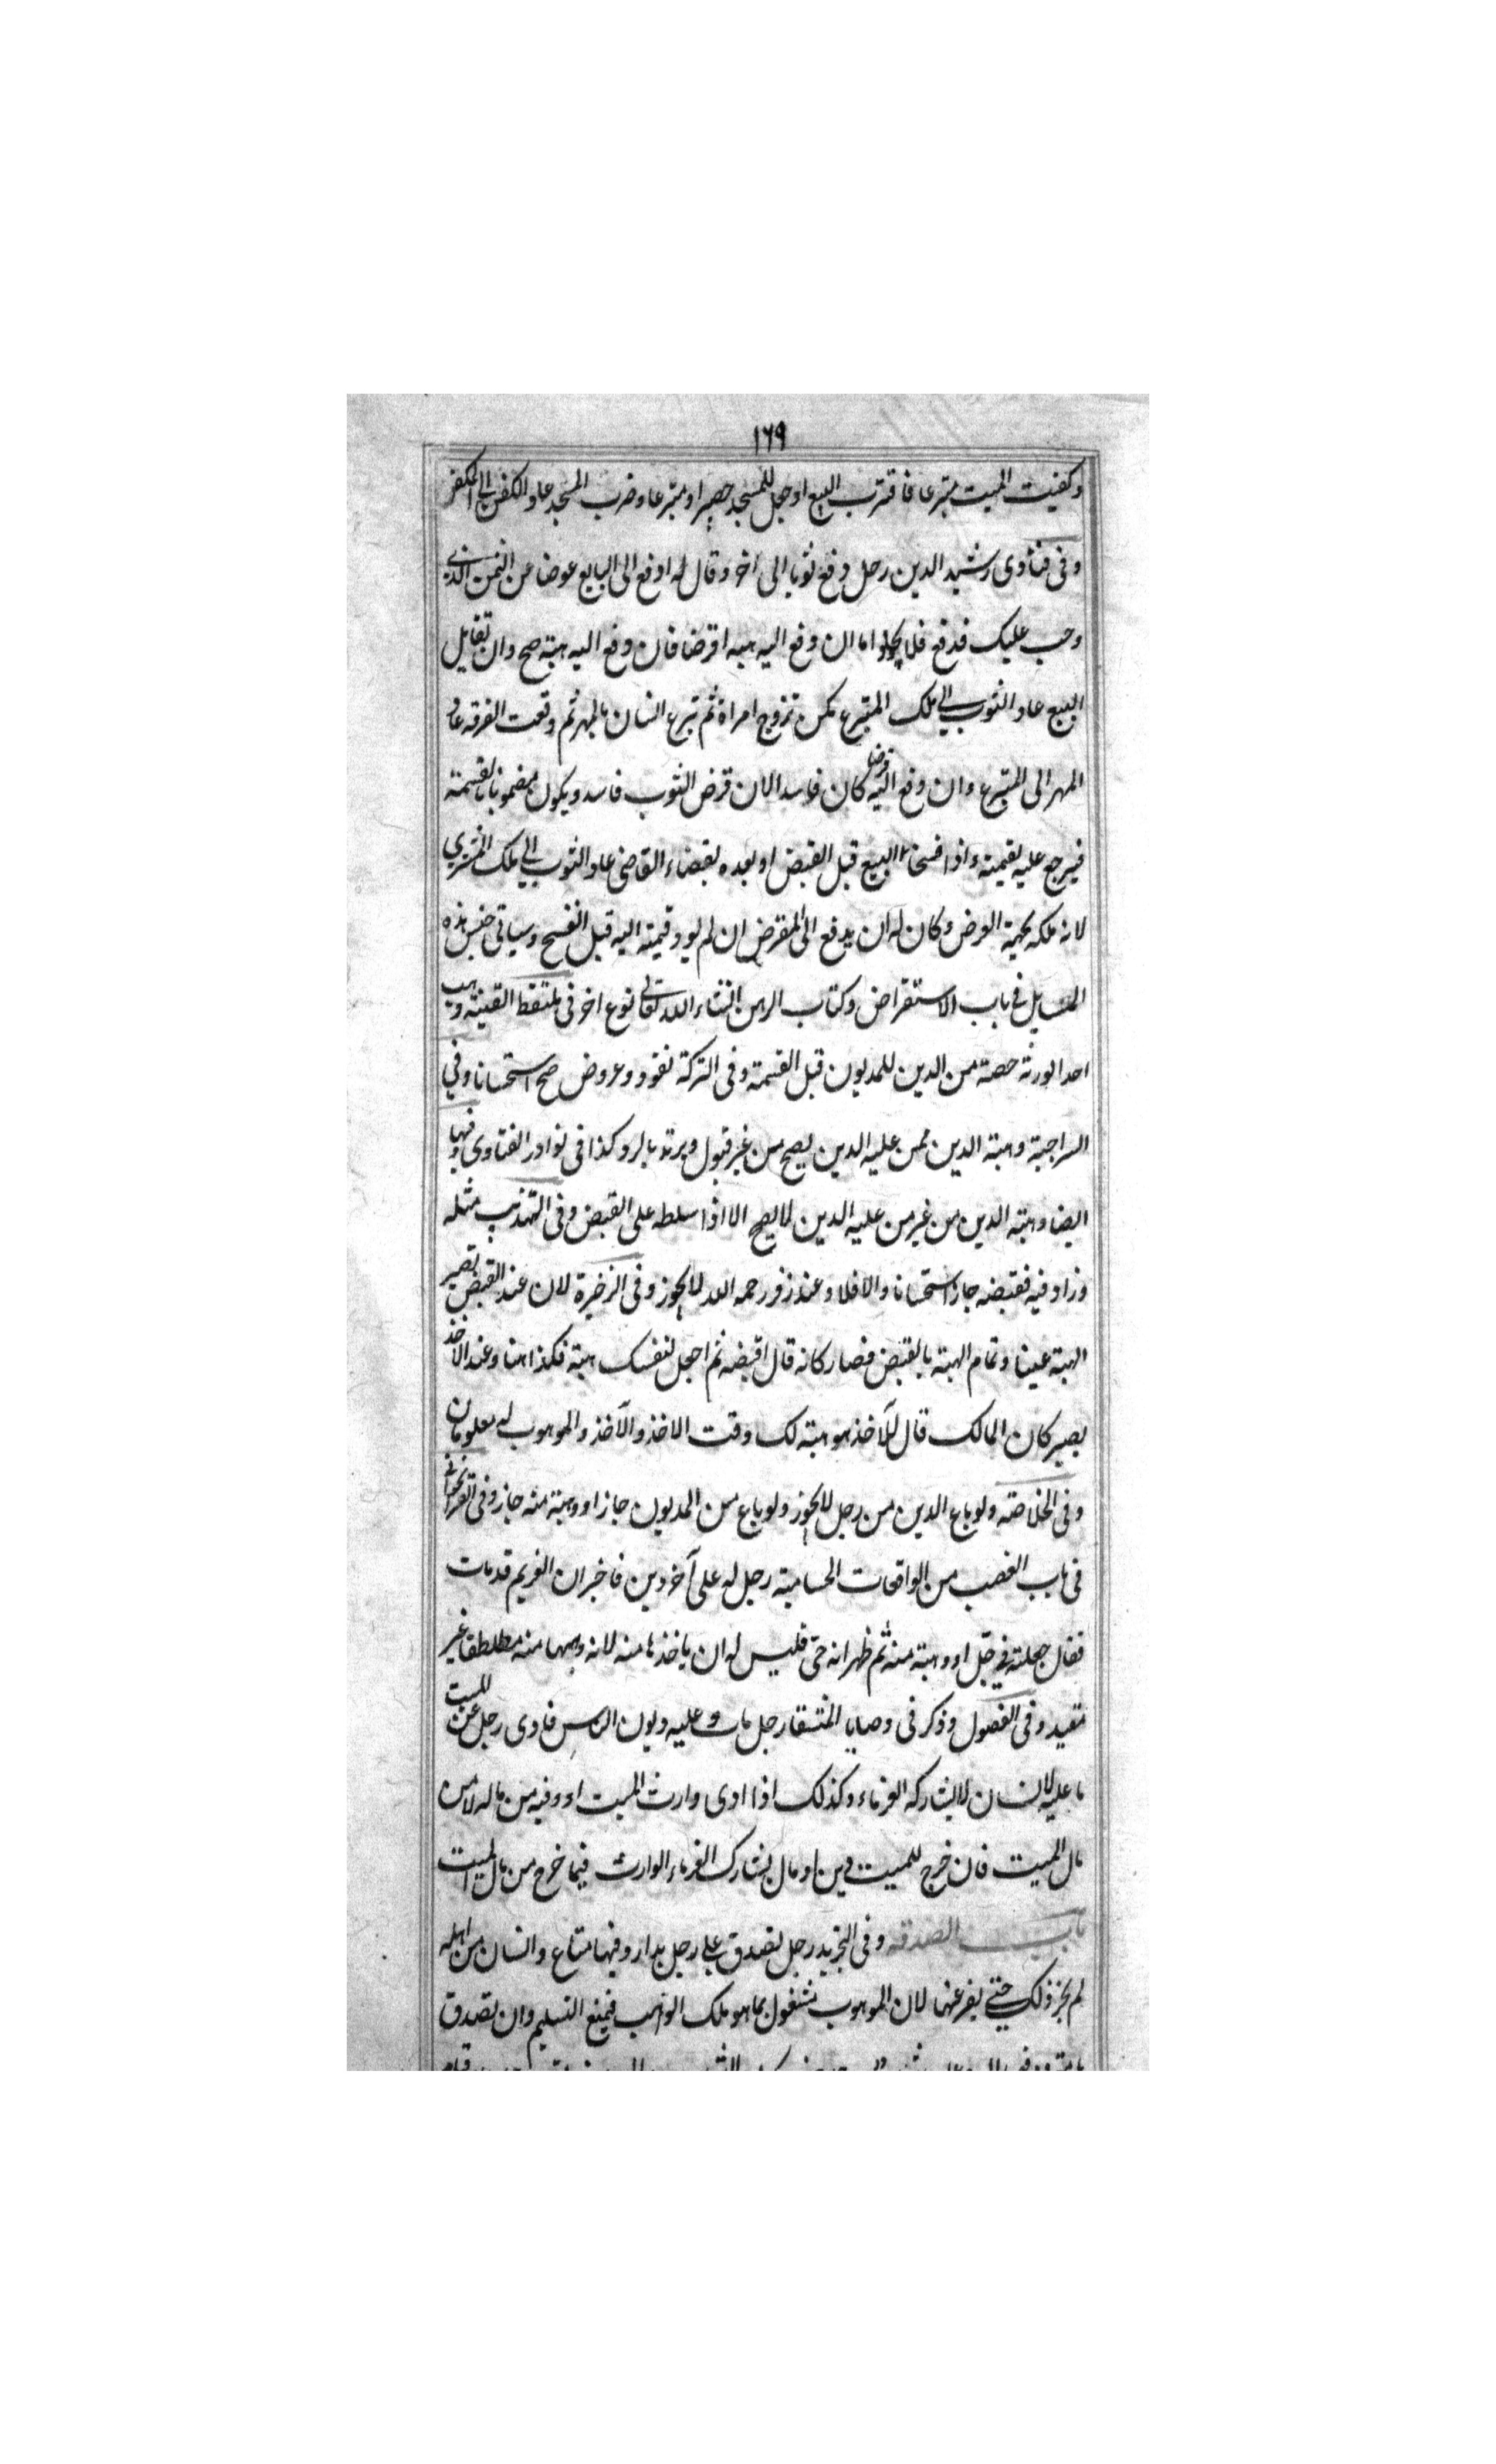 ١٦٩
وكفنت الميت متبرعا فاقترب السبع او جعل للمسجد حصيرا و متبرعا و خرب المسجد عاد الكفن الى المكفن
وفى فتاوى رشيد الدين رجل دفع ثوبا الى اخر وقال له ادفع الى البايع عوضا عن الثمن الذى
وجب عليك فدفع فلا يخلوا اما ان دفع اليه هبه او قرضا فان دفع اليه هبة صح وان تقايل
البيع عاد الثوب الى ملك المتبرع كمن تزوج امراة ثم تبرع انسان بالمهر ثم وقعت الفرقه عاد
المهر الى المتبرع وان دفع اليه قرضا كان فاسدا لان قرض الثوب فاسد ويكون مضمونا بالقسمة
فيرجع عليه بقيمته واذا فسخا البيع قبل القبض او بعده بقضاء القاضى عاد الثوب الى ملك المشترى
لانه ملكه بجهة العرض وكان له ان يدفع الى المقرض ان لم يود قيمته اليه قبل الفسخ وسياتى جنس هذه
المسايل فى باب الاستقراض وكتاب الرهن انشاء الله تعالى نوع اخر فى ملتقط القينة وهب
احد الورثة حصة من الدين للمديون قبل القسمة وفى التركة نقود وعروض صح استحسانا وفى
السراجية وهبة الدين ممن عليه الدين يصح من غير قبول ويرتد بالرد كذا فى نوادر الفتاوى وفيها
ايضا وهبة الدين من غير من عليه الدين لا يصح الا اذا سلطه على القبض وفى التهذيب مثله
وزاد فيه فقبضه جاز استحسانا والا فلا وعند زفر رحمه الله لا يجوز وفى الذخيرة لان عند القبض تصير
الهبة عينا وتمام الهبة بالقبض فصار كانه قال اقبضه ثم اجعل لنفسك هبة فكذا هنا وعند الاخذ
يصير كان المالك قال للآخذ هو هبة لك وقت الاخذ والآخذ والموهوب له معلومان
وفى الخلاصة ولو باع الدين من رجل لا يجوز ولو باع من المديون جاز او وهبة منه جاز وفى
فى باب الغصب من الواقعات الحسامية رجل له على آخر دين فاخبر ان الغريم قد مات
فقال جعلته فى حل او وهبة منه ثم ظهر انه حى فليس له ان ياخذها منه لانه وهبها منه مطلقا غير
مقيد وفى الفصول وذكر فى وصايا المنتقا رجل مات و عليه ديون الناس فادى رجل عن الميت
ما عليه لانسان لا يشاركه الغرماء وكذلك اذا ادى وارث الميت او وفيه من ماله لا من
مال الميت فان خرج للميت دين او مال يشارك الغرماء الوارث فيما خرج من مال الميت
باب الصدقه وفى التجريد رجل تصدق على رجل بدار وفيها متاع وانسان من اهله
لم يجز ذلك حتى يفرغها لان الموهوب مشغول بما هو ملك الواهب فيمنع التسليم وان تصدق